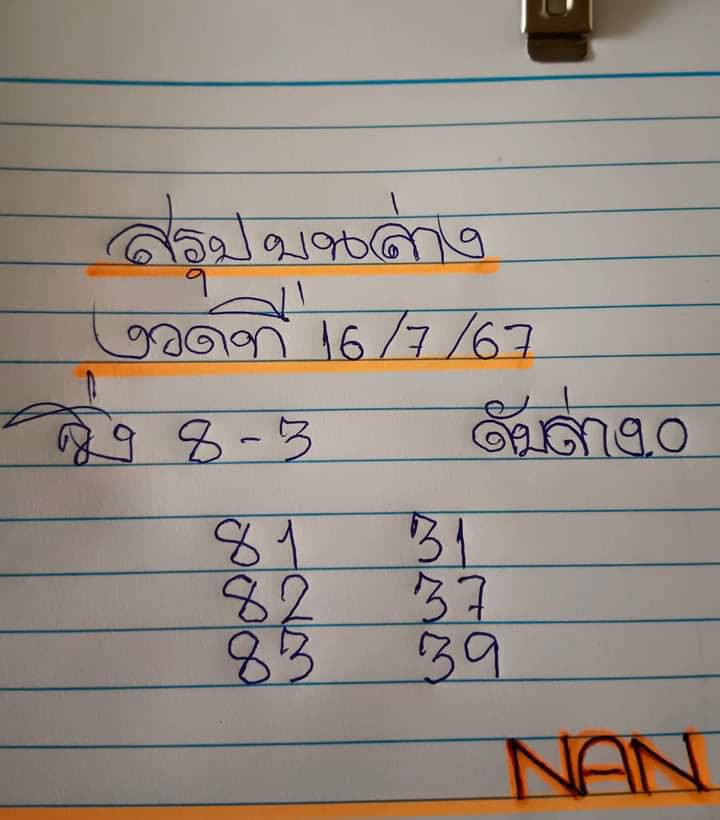 สรุป บนล่าง
งวดที่ 16/7/67
วิ่ง 8-3 ดับล่าง.0
81 31
82 37
83 39
NAN